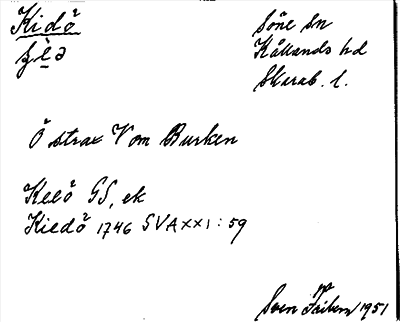 Kidö
Söne Sn
Kållands hd
Skarab. l.
Ö strax V om Burken
Keeö GS, ek
Kiedö 1746 SVAXXI: 59
Sven 1951